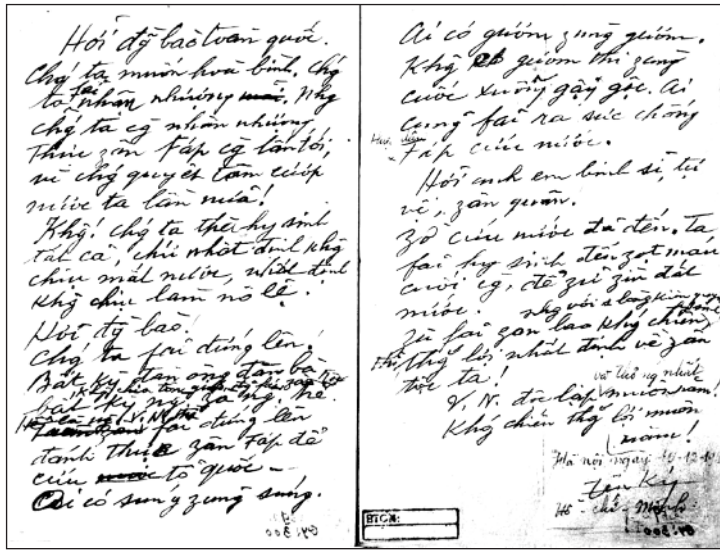 Hỡi đg̃ bào toàn quốc.
Chǵ ta muốn hoà bình. Chǵ
ta fải nhân nhượng. Nhg
chǵ ta cg̀ nhân nhượng
thực zân Fáp cg̀ lấn tới,
vì chǵ quyết tâm cướp
nước ta lần nữa!
Khg! chǵ ta thà hy sinh
tất cả, chứ nhất định khg
chịu mất nước, nhất định
khg chịu làm nô lệ.
Hỡi đg̀ bào!
Chǵ ta fải đứng lên!
Bất kỳ đàn ông đàn bà
bất kỳ ng
fải đứng lên
đánh thực zân Fáp để
cứu tổ quốc –
Ai có súng zùng súng.
Ai có gươm zùng gươm.
Khg có gươm thì zùng
cuốc xuổng gậy gộc. Ai
cũng fải ra sức chống
Fáp cứu nước.
Hỡi anh em binh sĩ, tự
vệ, zân quân.
Zờ cứu nước đã đến. Ta
fải hy sinh đến zọt máu
cuối cg̀, để zữ zìn đất
nước.
Zù fải zan lao khǵ chiến
nhg với 1 lòng kiên quyết
thg lợi nhất định về zân
tộc ta!
V. N. độc lập và thống nhất muôn năm!
Khǵ chiến thg lợi muôn
năm!
Hà nội ngày
tên Ký
Hồ - chí - Minh
BTCM: